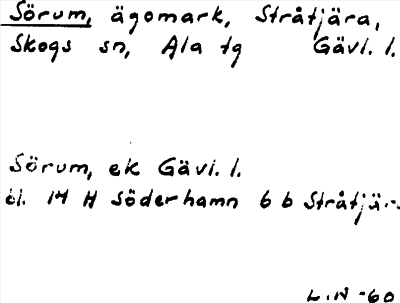 Sörum, ägomark, Stråtjära,
Skogs sn, Ala tg Gävl. l.
Sörum, ek Gävl. l.
bl. 14 H Söderhamn 6 b Stråtjär.
L.N -60